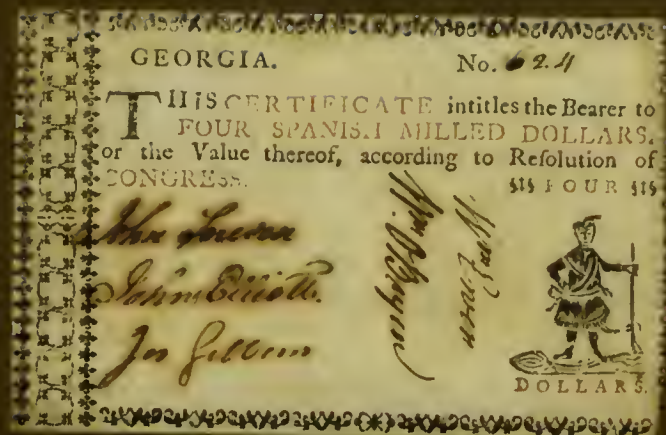 GEORGIA. No. 624
THIS CERTIFICATE intitles the Bearer to
FOUR SPANISH MILLED DOLLARS,
or the Value thereof, according to Reſolution of
CONGRESS. FOUR
John
John Elliott.
Wm O'Bryen
Wm Ewen
DOLLARS.